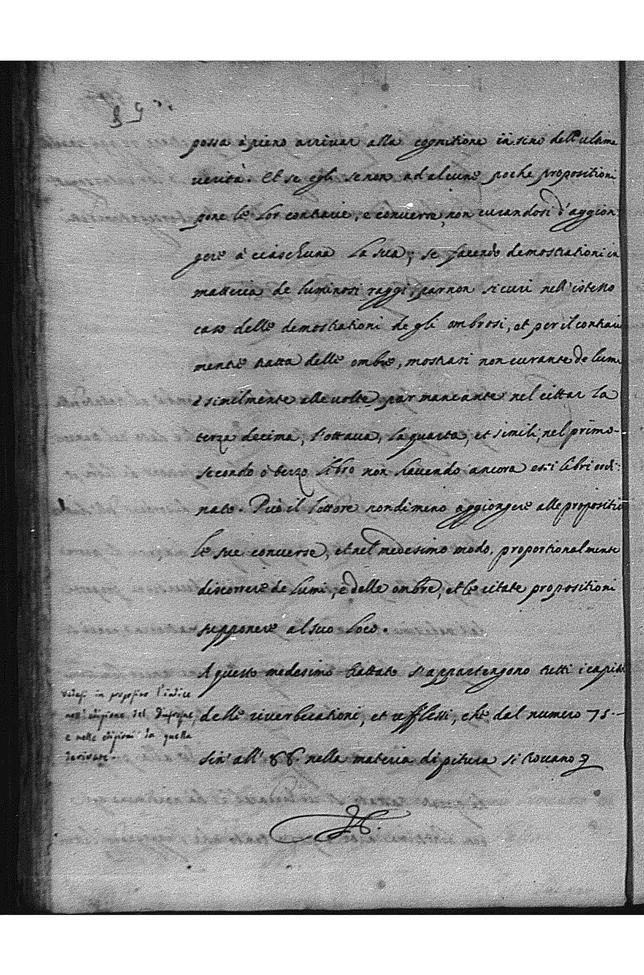 possa à pieno arrivar alla cognitione in sino dell'ultime
verità. Et se egli se non ad alcune poche propositioni
pone le lor contrarie, e converse, non curandosi d'aggion
gere à ciaschuna la sua; se facendo demostrationi in
materia de luminosi raggi, par non si curi nell'istesso
caso delle demostrationi de gli ombrosi, et per il contrari
mente tratta delle ombre, mostrasi non curante de lumi
è similmente alle volte par mancante nel cittar la
terza decima, l'ottava, la quarta, et simili, nel primo
secondo o terzo libro non havendo ancora essi libri ordi:
nato. Può il lettore nondimeno aggiongere alle propositio
le sue converse, et nel medesimo modo, proportionalmente
discorrere de lumi, e delle ombre, et le citate propositioni
supponere al suo loco.
A questo medesimo trattato s'appartengono tutti i capit
delle riverberationi, et reflessi, che dal numero 75
sin' all' 88 nella materia di pitura si trovano
Vedasi in proposito l'indice
nell'edizione del Dufresne,
e nelle edizioni da quella
derivate.